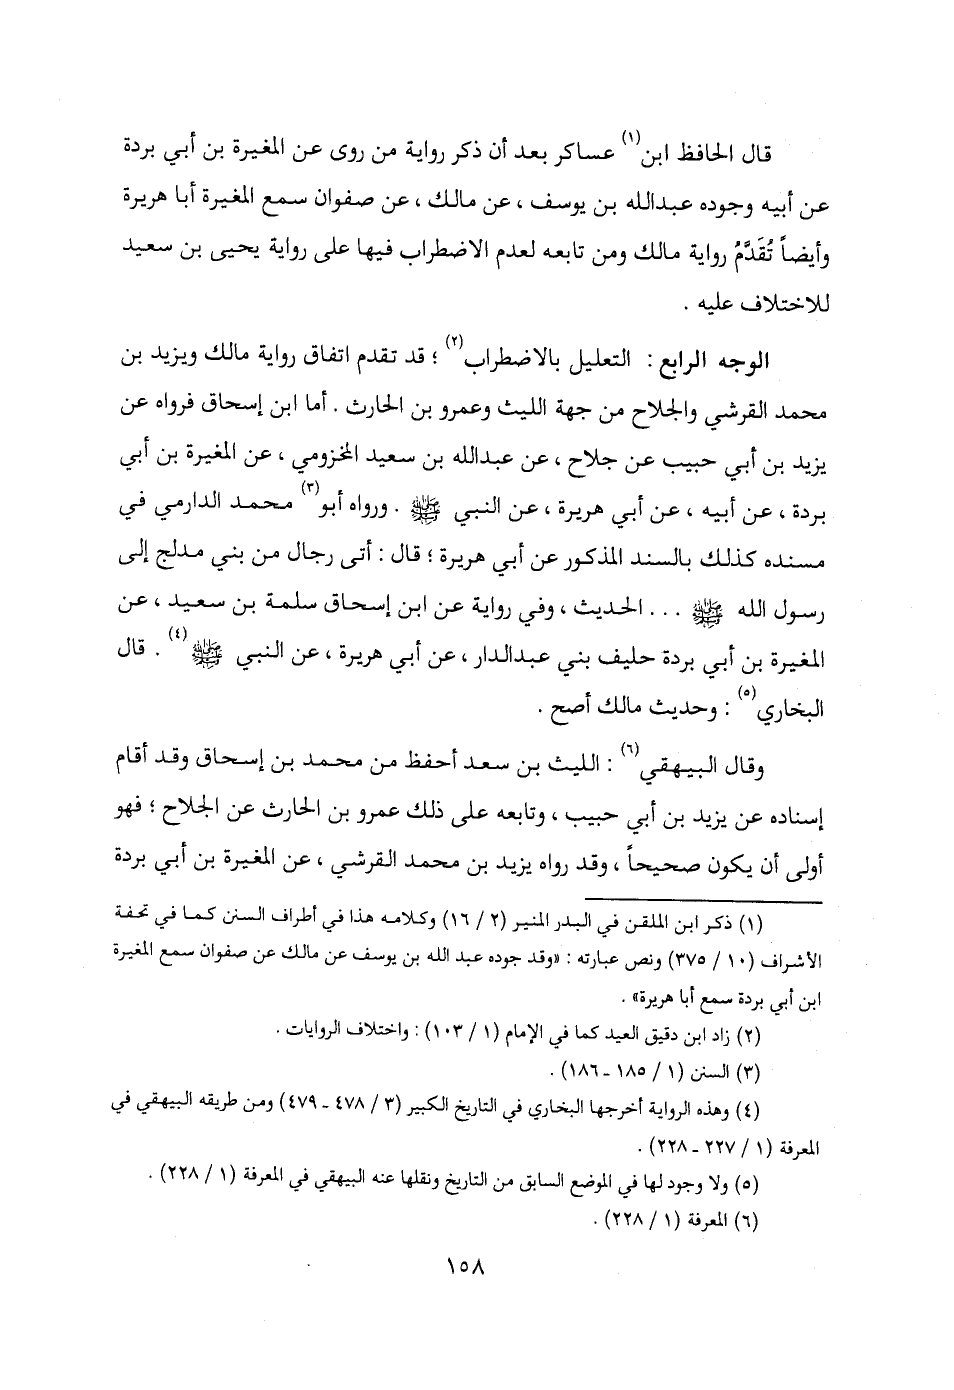 قال الحافظ ابن(١) عساكر بعد أن ذكر رواية من روى عن المغيرة بن أبي بردة
عن أبيه وجوده عبدالله بن يوسف ، عن مالك ، عن صفوان سمع المغيرة أبا هريرة
وأيضاً تُقَدَّمُ رواية مالك ومن تابعه لعدم الاضطراب فيها على رواية يحيى بن سعيد
للاختلاف عليه .
الوجه الرابع : التعليل بالاضطراب(٢) ؛ قد تقدم اتفاق رواية مالك ويزيد بن
محمد القرشي والجلاح من جهة الليث وعمرو بن الحارث . أما ابن إسحاق فرواه عن
يزيد بن أبي حبيب عن جلاح ، عن عبدالله بن سعيد المخزومي ، عن المغيرة بن أبي
بردة ، عن أبيه ، عن أبي هريرة ، عن النبي ﷺ . ورواه أبو(٣) محمد الدارمي في
مسنده كذلك بالسند المذكور عن أبي هريرة ؛ قال : أتى رجال من بني مدلج إلى
رسول الله ﷺ ... الحديث ، وفي رواية عن ابن إسحاق سلمة بن سعيد ، عن
المغيرة بن أبي بردة حليف بني عبدالدار ، عن أبي هريرة ، عن النبي ﷺ(٤) . قال
البخاري(٥) : وحديث مالك أصح .
وقال البيهقي(٦) : الليث بن سعد أحفظ من محمد بن إسحاق وقد أقام
إسناده عن يزيد بن أبي حبيب ، وتابعه على ذلك عمرو بن الحارث عن الجلاح ؛ فهو
أولى أن يكون صحيحاً ، وقد رواه يزيد بن محمد القرشي ، عن المغيرة بن أبي بردة
(١) ذكر ابن الملقن في البدر المنير (٢ / ١٦) وكلامه هذا في أطراف السنن كما في تحفة
الأشراف (١٠ / ٣٧٥) ونص عبارته : «وقد جوده عبد الله بن يوسف عن مالك عن صفوان سمع المغيرة
ابن أبي بردة سمع أبا هريرة» .
(٢) زاد ابن دقيق العيد كما في الإمام (١ / ١٠٣) : واختلاف الروايات .
(٣) السنن (١ / ١٨٥ ـ ١٨٦) .
(٤) وهذه الرواية أخرجها البخاري في التاريخ الكبير (٣ / ٤٧٨ ـ ٤٧٩) ومن طريقه البيهقي في
المعرفة (١ / ٢٢٧ ـ ٢٢٨) .
(٥) ولا وجود لها في الموضع السابق من التاريخ ونقلها عنه البيهقي في المعرفة (١ / ٢٢٨) .
(٦) المعرفة (١ / ٢٢٨) .
١٥٨